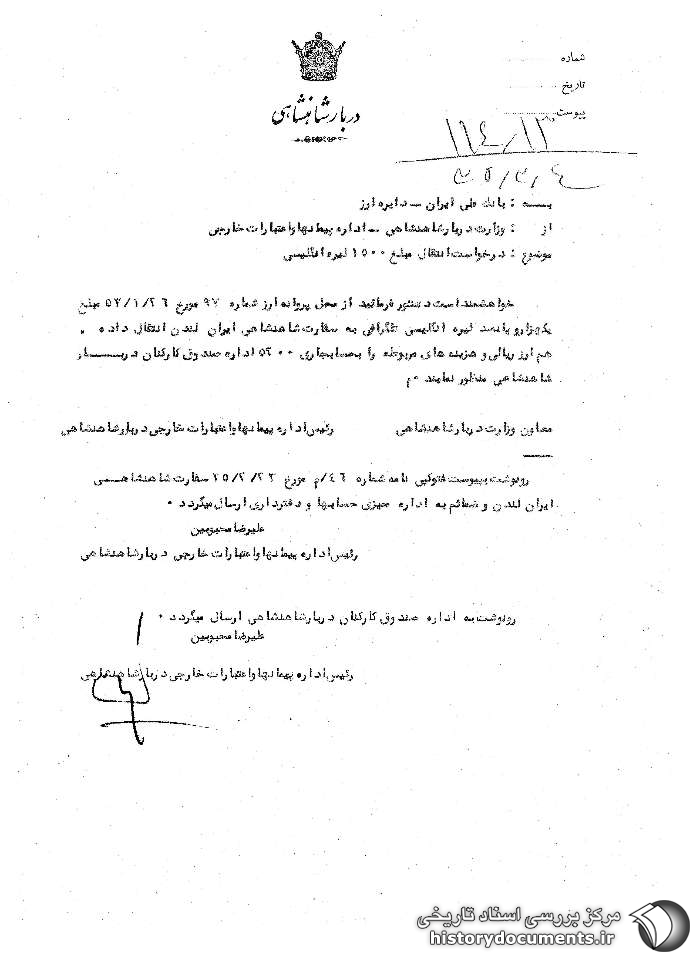 دربار شاهنشاهی
شماره
تاریخ
پیوست
۱۱۴/۱۲
۳۵/۳/۴
به : بانک ملی ایران ــ دایره ارز
از : وزارت دربار شاهنشاهی ــ اداره پیمانها و اعتبارات خارجی
موضوع : درخواست انتقال مبلغ ۱۵۰۰ لیره انگلیسی
خواهشمند است دستور فرمائید از محل پروانه ارز شماره ۹۷ مورخ ۵۳/۱/۲۶ مبلغ
یکهزار و پانصد لیره انگلیسی تلگرافی به سفارت شاهنشاهی ایران لندن انتقال داده و
هم ارز ریالی و هزینه های مربوطه را بحسابجاری ۵۲۰۰ اداره صندوق کارکنان دربـــار
شاهنشاهی منظور نمایند ۰م
معاون وزارت دربار شاهنشاهی رئیس اداره پیمانها و اعتبارات خارجی دربار شاهنشاهی
رونوشت بپیوست فتوکپی نامه شماره ۴۶/م مورخ ۳۵/۲/۲۳ سفارت شاهنشاهـــی
ایران لندن و ضمائم به اداره ممیزی حسابها و دفترداری ارسال میگردد ۰
علیرضا محبوبین
رئیس اداره پیمانها و اعتبارات خارجی دربار شاهنشاهی
رونوشت به اداره صندوق کارکنان دربار شاهنشاهی ارسال میگردد ۰
علیرضا محبوبین
رئیس اداره پیمانها و اعتبارات خارجی دربار شاهنشاهی
مرکز بررسی اسناد تاریخی
historydocuments.ir